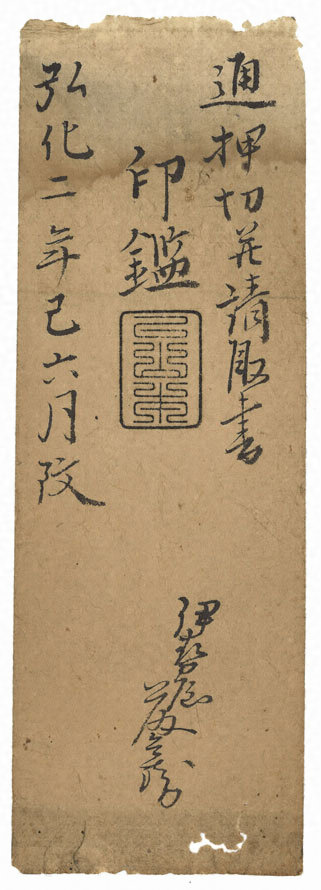 通押切并請取書
印鑑
弘化二年巳六月改
伊勢屋